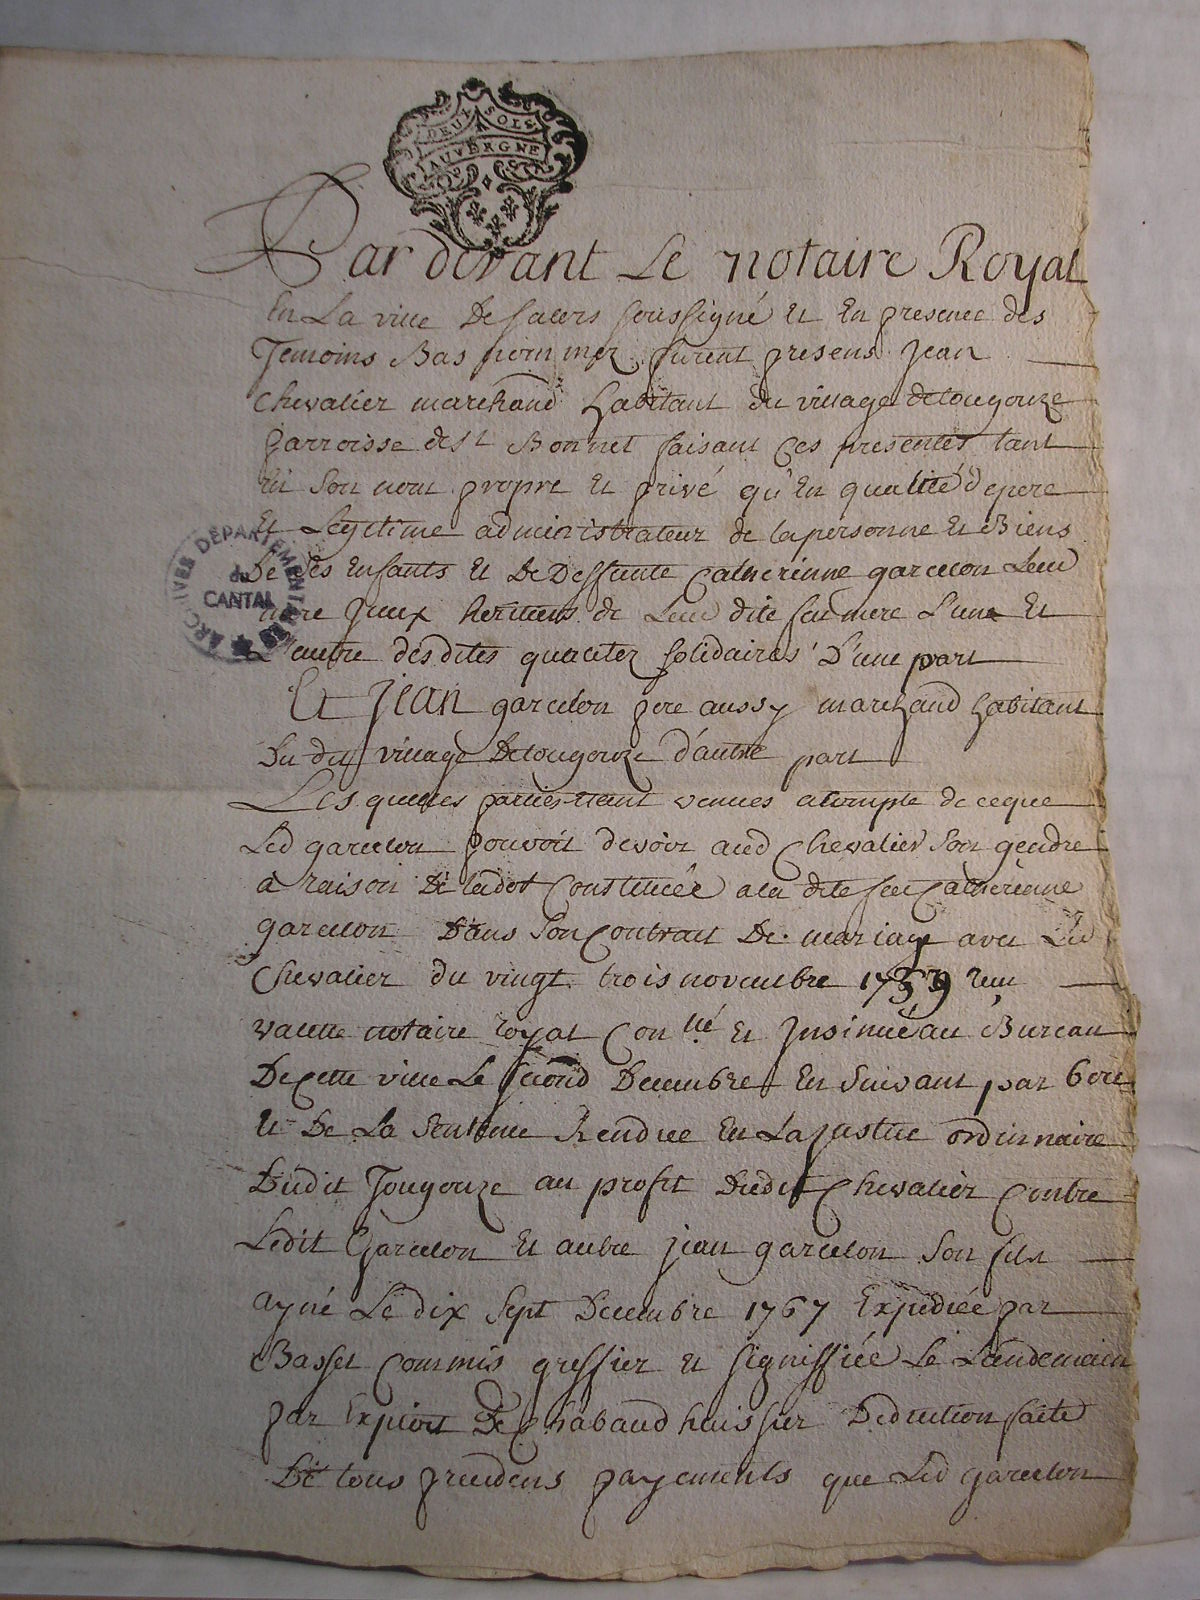 DEUX SOLS
AUVERGNE
Par devant Le notaire Royal
En La ville De salers soussigné Et En presence des
Temoins Bas nommez furent presens Jean
Chevalier marchand habitant du village detougouze
parroisse de st Bonnet faisant Ces presentes tant
En Son nom propre Et privé qu'En qualité depere
Et Legitime administrateur de lapersonne Et Biens
De ses Enfants Et De Deffunte Catherinne garcelon Leur
mere Jceux heritiers de Leur dite feu mere L'une Et
L'autre desdites qualitez solidaires D'une part
Et Jean garcelon pere aussy marchand habitant
Du dit village Detougouze d'autre part
Lesquelles parties Etant venues acompte de ceque
Led garcelon pouvoit devoir aud Chevalier Son gendre
a raison De ladot Constituée ala dite feu Catherinne
garcelon Dans Son Contrat De mariage avec Led
Chevalier du vingt trois novembre 1759 Reçu
valette notaire royal Con.llé Et Jnsinué au Bureau
De cette ville Le second Decembre En Suivant par
Et De La Sentence Rendue En La justice ordinnaire
Dudit Tougouze au profit Dudit Chevalier Contre
Ledit Garcelon Et autre jean garcelon Son fils
ayné Le dix Sept Decembre 1767 Expediée par
Basset Commis greffier Et signiffiée Le Landemain
par Exploit De Chabaud huissier Deduction faite
De tous precedens payements que Led garcelon
ARCHIVES DEPARTEMENTALES
du
CANTAL